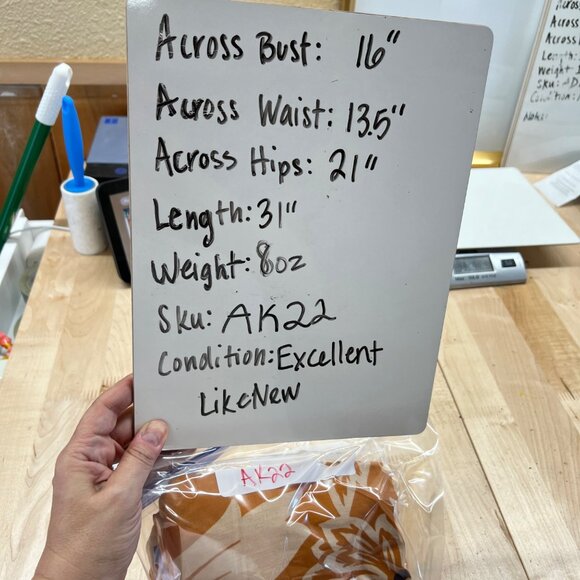 Across Bust: 16"
Across Waist: 13.5"
Across Hips: 21"
Length: 31"
Weight: 8oz
Sku: AK22
Condition: Excellent
Like New
AK22
Across
Across
Length:
Weight
Sku:
Condition:
Notes: